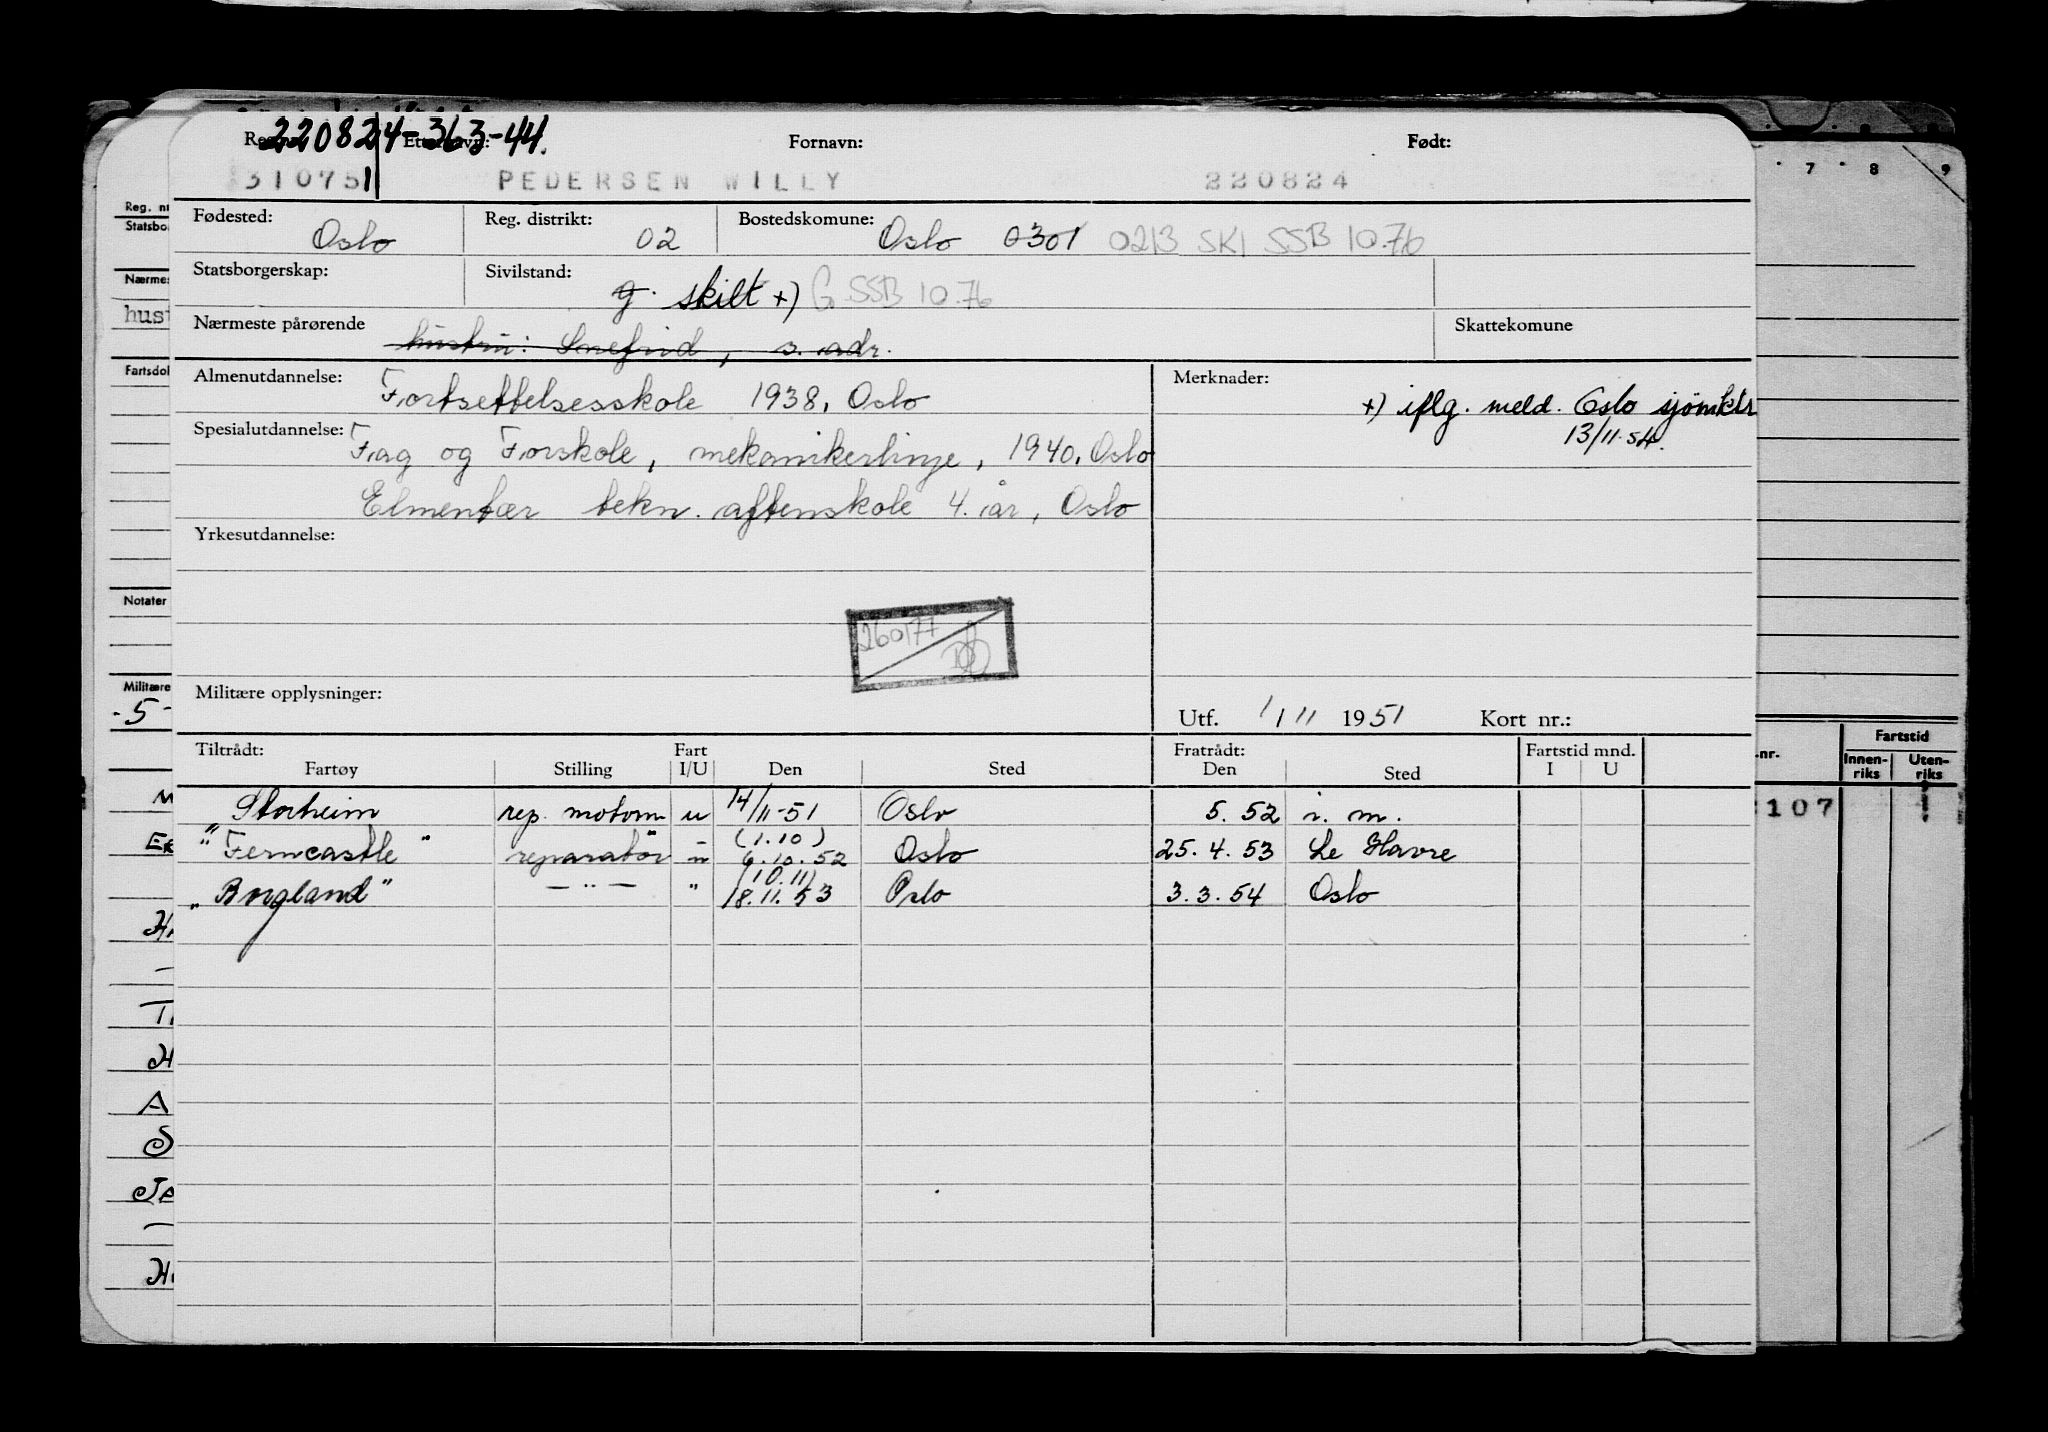 220824-363-44.
Etternavn: Fornavn: Født:
310751 PEDERSEN WILLY 220824
Fødested: Oslo Reg. distrikt: 02 Bostedskomune: Oslo 0301 0213 SKI SSB 10.76
Statsborgerskap: Sivilstand: g. skilt +) G SSB 10.76
Nærmeste pårørende hustru: Snefrid, s. adr. Skattekomune
Almenutdannelse: Fortsettelsesskole 1938, Oslo Merknader:
+) iflg. meld. Oslo sjömktr
13/11-54.
Spesialutdannelse: Fag og Forskole, mekanikerlinje, 1940, Oslo
Elmentær tekn. aftenskole 4. år, Oslo
Yrkesutdannelse:
260177
Militære opplysninger:
Utf. 1/11 1951 Kort nr.:
Tiltrådt: Fart Fratrådt: Fartstid mnd.
Fartøy Stilling I/U Den Sted Den Sted I U
Storheim rep. motorm u 14/11-51 Oslo 5. 52 i. m.
(1.10)
"Ferncastle" reparatör u 6.10.52 Oslo 25.4.53 Le Havre
(10.11)
"Borgland" — " — " 18.11.53 Oslo 3.3.54 Oslo
Reg. nr
Statsbo
Nærmes
hust
Fartsdok
Notater
Militære
-5-
M
Ek
H
T
H
A
S
Ja
H
7 8 9
-nr. Fartstid
Innen-
riks
Uten-
riks
107